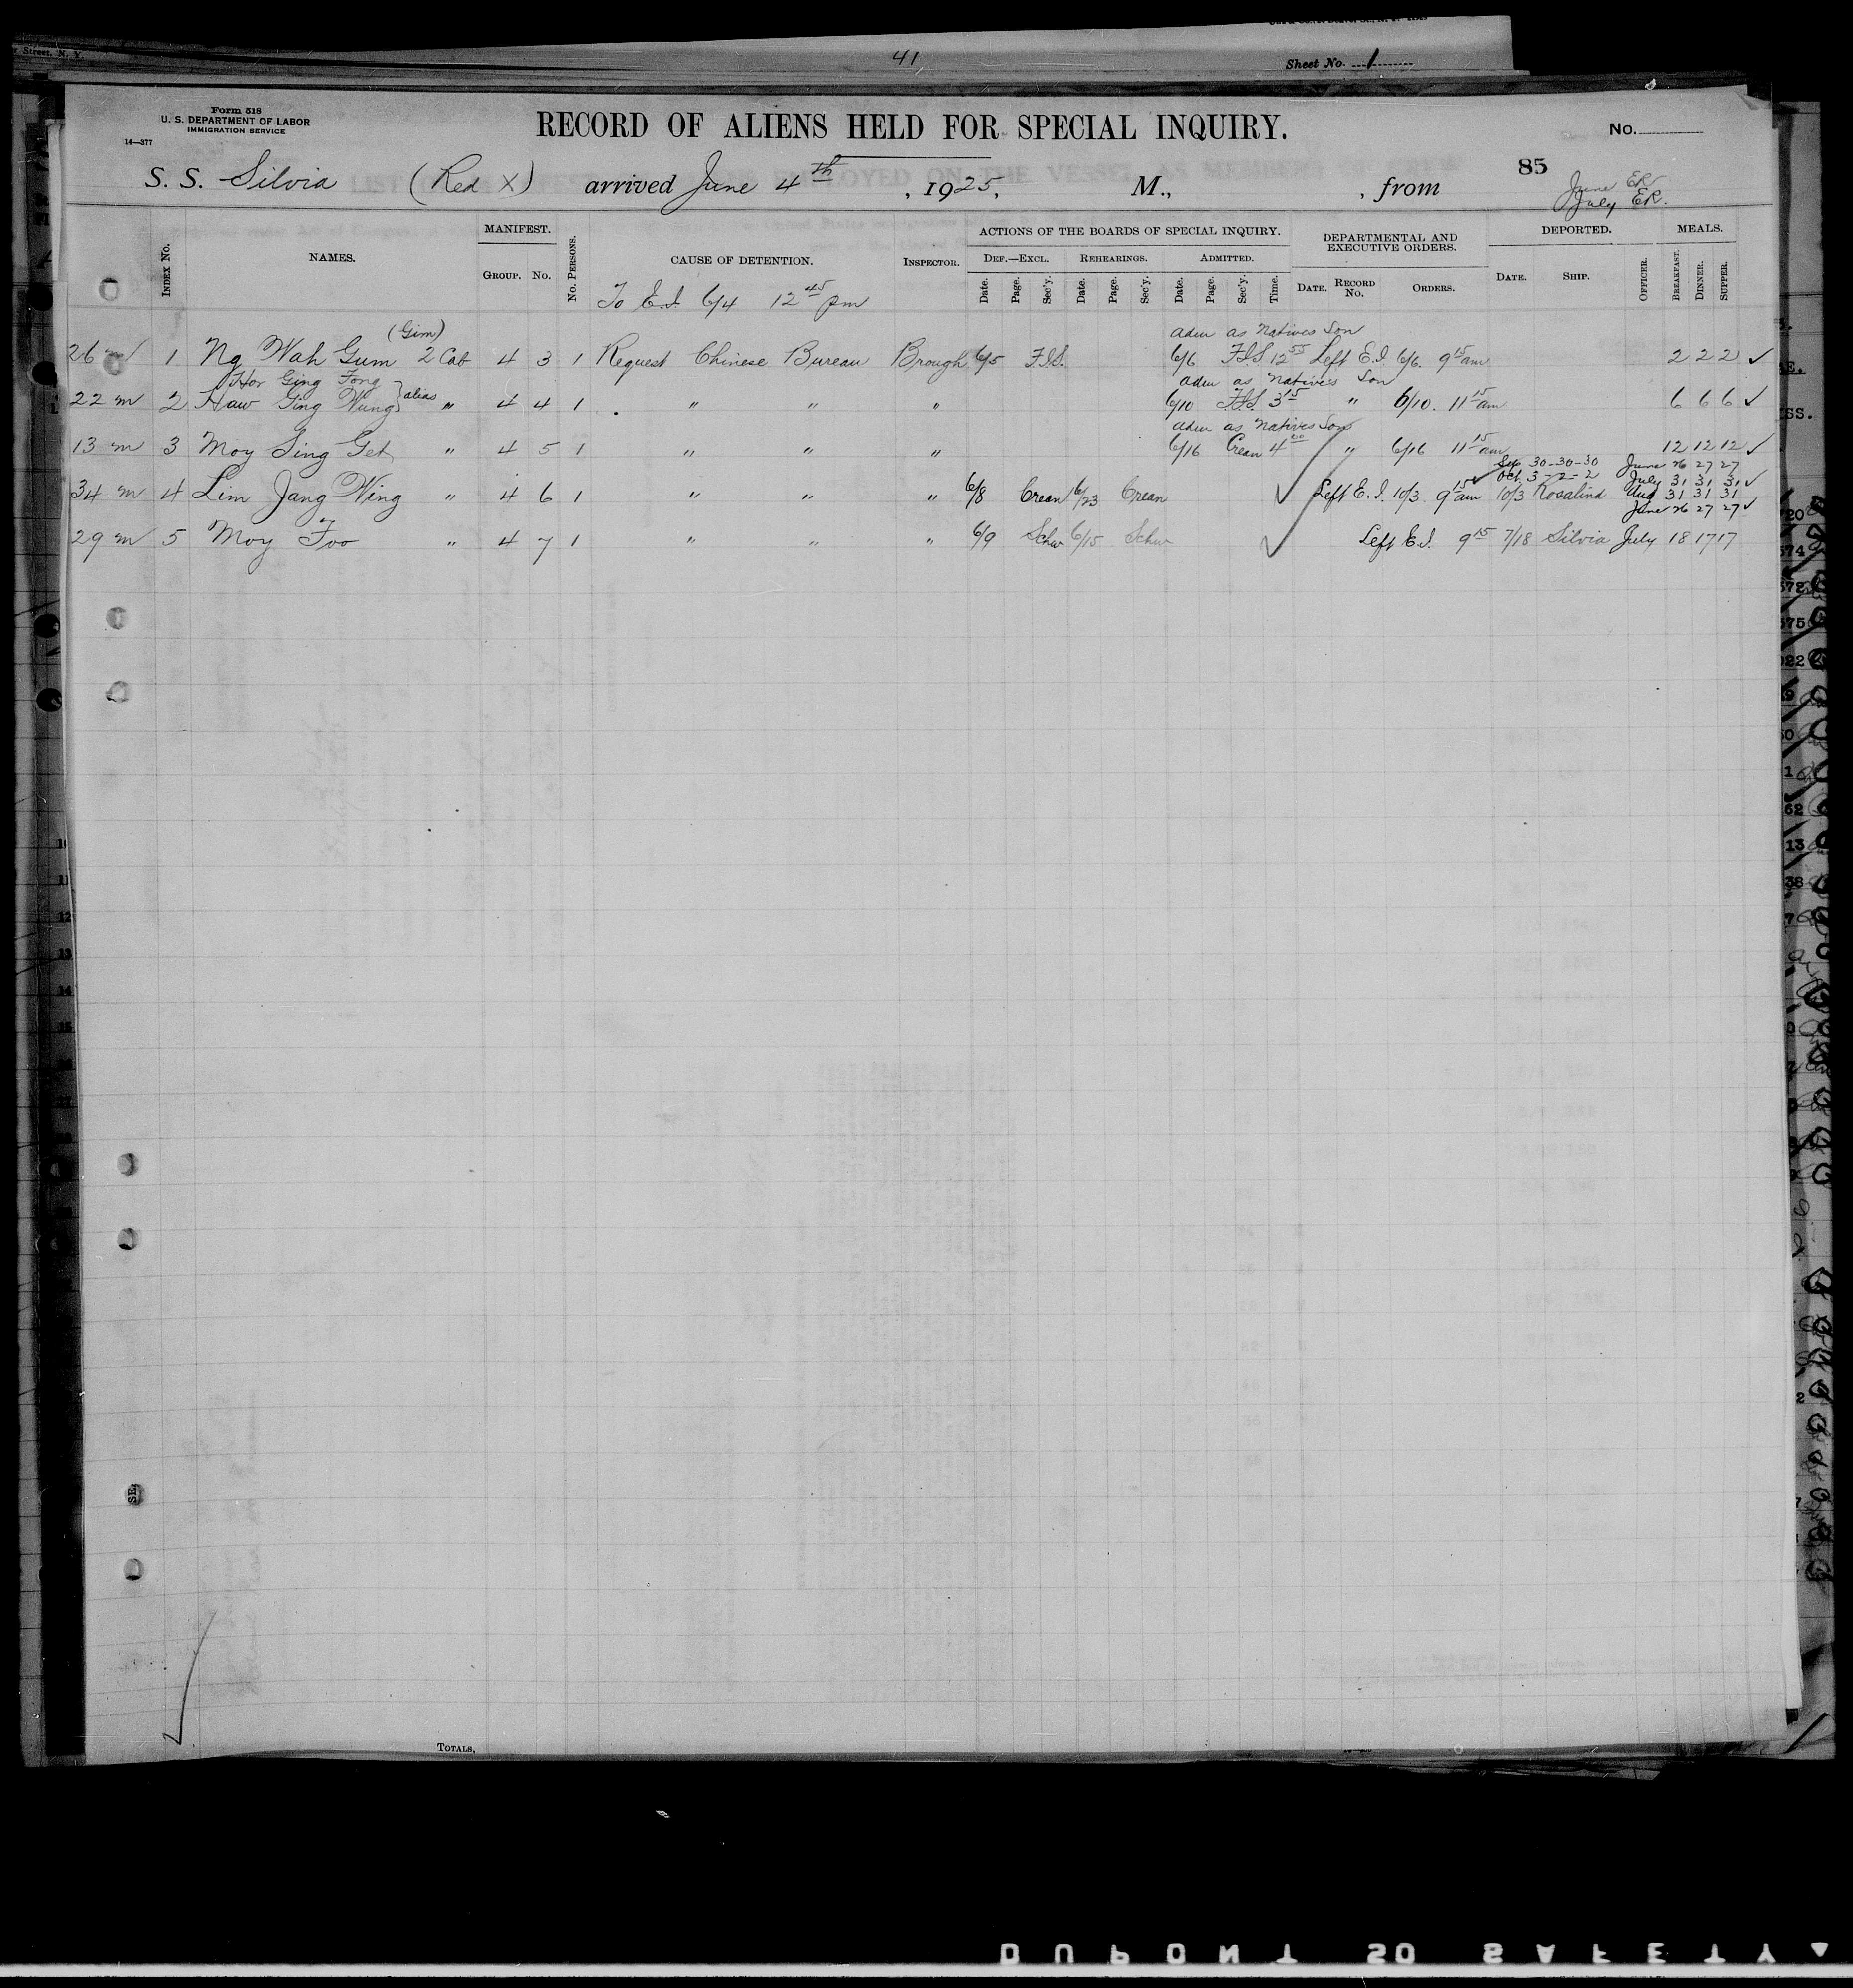 41
Sheet No. 1
Form 518
U. S. DEPARTMENT OF LABOR
IMMIGRATION SERVICE
14—377
RECORD OF ALIENS HELD FOR SPECIAL INQUIRY.
No.
85
S. S. Silvia (Red X) arrived June 4th, 1925, M., , from
June ER
July ER.
INDEX No. NAMES. MANIFEST. GROUP. No. No. PERSONS. CAUSE OF DETENTION. INSPECTOR. ACTIONS OF THE BOARDS OF SPECIAL INQUIRY. DEF.—EXCL. REHEARINGS. ADMITTED. Date. Page. Sec'y. Date. Page. Sec'y. Date. Page. Sec'y. Time. DEPARTMENTAL AND EXECUTIVE ORDERS. DATE. RECORD No. ORDERS. DEPORTED. DATE. SHIP. OFFICER. MEALS. BREAKFAST. DINNER. SUPPER.
To E.I. 6/4 12 45 pm
(Gim) adm as Natives Son
26 m 1 Ng Wah Gum 2 Cab 4 3 1 Request Chinese Bureau Brough 6/5 F.I.S. 6/6 F.I.S 12 55 Left E.I. 6/6. 9 15 am 2 2 2 ✓
Hor Ging Fong adm as Natives Son
22 m 2 Haw Ging Wung } alias " 4 4 1 " " " 6/10 F.I.S. 3 15 " 6/10. 11 15 am 6 6 6 ✓
adm as Natives Son
13 m 3 Moy Sing Get " 4 5 1 " " " 6/16 Crean 4 00 " 6/16 11 15 am 12 12 12 ✓
Sep. 30-30-30 June 26 27 27
Oct. 3-2-2 July 31 31 31 ✓
34 m 4 Lim Jang Wing " 4 6 1 " " " 6/8 Crean 6/23 Crean ✓ Left E.I. 10/3. 9 15 am 10/3 Rosalind Aug 31 31 31
June 26 27 27 ✓
29 m 5 Moy Foo " 4 7 1 " " " 6/9 Schw 6/15 Schw ✓ Left E.I. 9 15 7/18 Silvia July 18 17 17
TOTALS,
DUPONT SO SAFETY